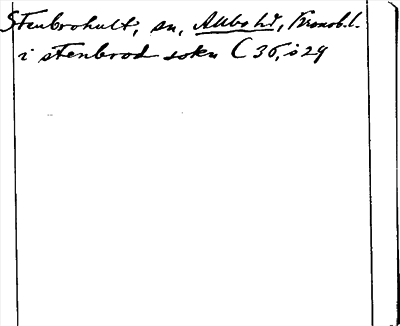 Stenbrohult, sn, Allbo hd, Kronob.l.
i stenbrod sokn C 35, s 29